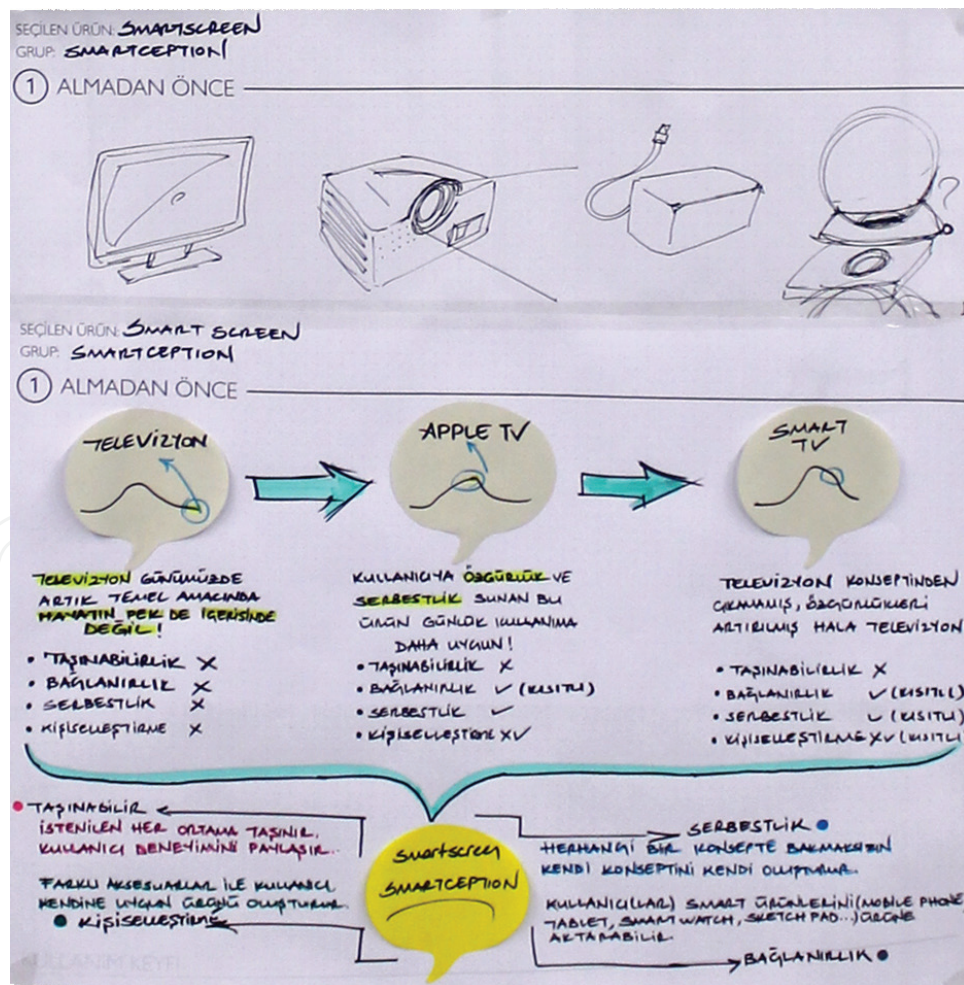 SEÇİLEN ÜRÜN: SMARTSCREEN
GRUP: SMARTCEPTION
1 ALMADAN ÖNCE
?
SEÇİLEN ÜRÜN: SMART SCREEN
GRUP: SMARTCEPTION
1 ALMADAN ÖNCE
TELEVİZYON
APPLE TV
SMART
TV
TELEVİZYON GÜNÜMÜZDE
ARTIK TEMEL AMACINDA
HAYATIN PEK DE İÇERİSİNDE
DEĞİL!
• TAŞINABİLİRLİK X
• BAĞLANIRLIK X
• SERBESTLİK X
• KİŞİSELLEŞTİRME X
KULLANICIYA ÖZGÜRLÜK VE
SERBESTLİK SUNAN BU
ÜRÜN GÜNLÜK KULLANIMA
DAHA UYGUN!
• TAŞINABİLİRLİK X
• BAĞLANIRLIK ✓ (KISITLI)
• SERBESTLİK ✓
• KİŞİSELLEŞTİRME X✓
TELEVİZYON KONSEPTİNDEN
ÇIKAMAMIŞ, ÖZGÜRLÜKLERİ
ARTIRILMIŞ HALA TELEVİZYON
• TAŞINABİLİRLİK X
• BAĞLANIRLIK ✓ (KISITLI)
• SERBESTLİK ✓ (KISITLI)
• KİŞİSELLEŞTİRME X✓ (KISITLI
• TAŞINABİLİR
İSTENİLEN HER ORTAMA TAŞINIR.
KULLANICI DENEYİMİNİ PAYLAŞIR..
FARKLI AKSESUARLAR İLE KULLANICI
KENDİNE UYGUN ÜRÜNÜ OLUŞTURUR.
• KİŞİSELLEŞTİRME
smartscreen
SMARTCEPTION
SERBESTLİK •
HERHANGİ BİR KONSEPTE BAKMAKSIZIN
KENDİ KONSEPTİNİ KENDİ OLUŞTURUR.
KULLANICI(LAR) SMART ÜRÜNLERİNİ (MOBILE PHONE,
TABLET, SMART WATCH, SKETCH PAD...) ÜRÜNE
AKTARABİLİR.
BAĞLANIRLIK •
KULLANIM KEYFİ